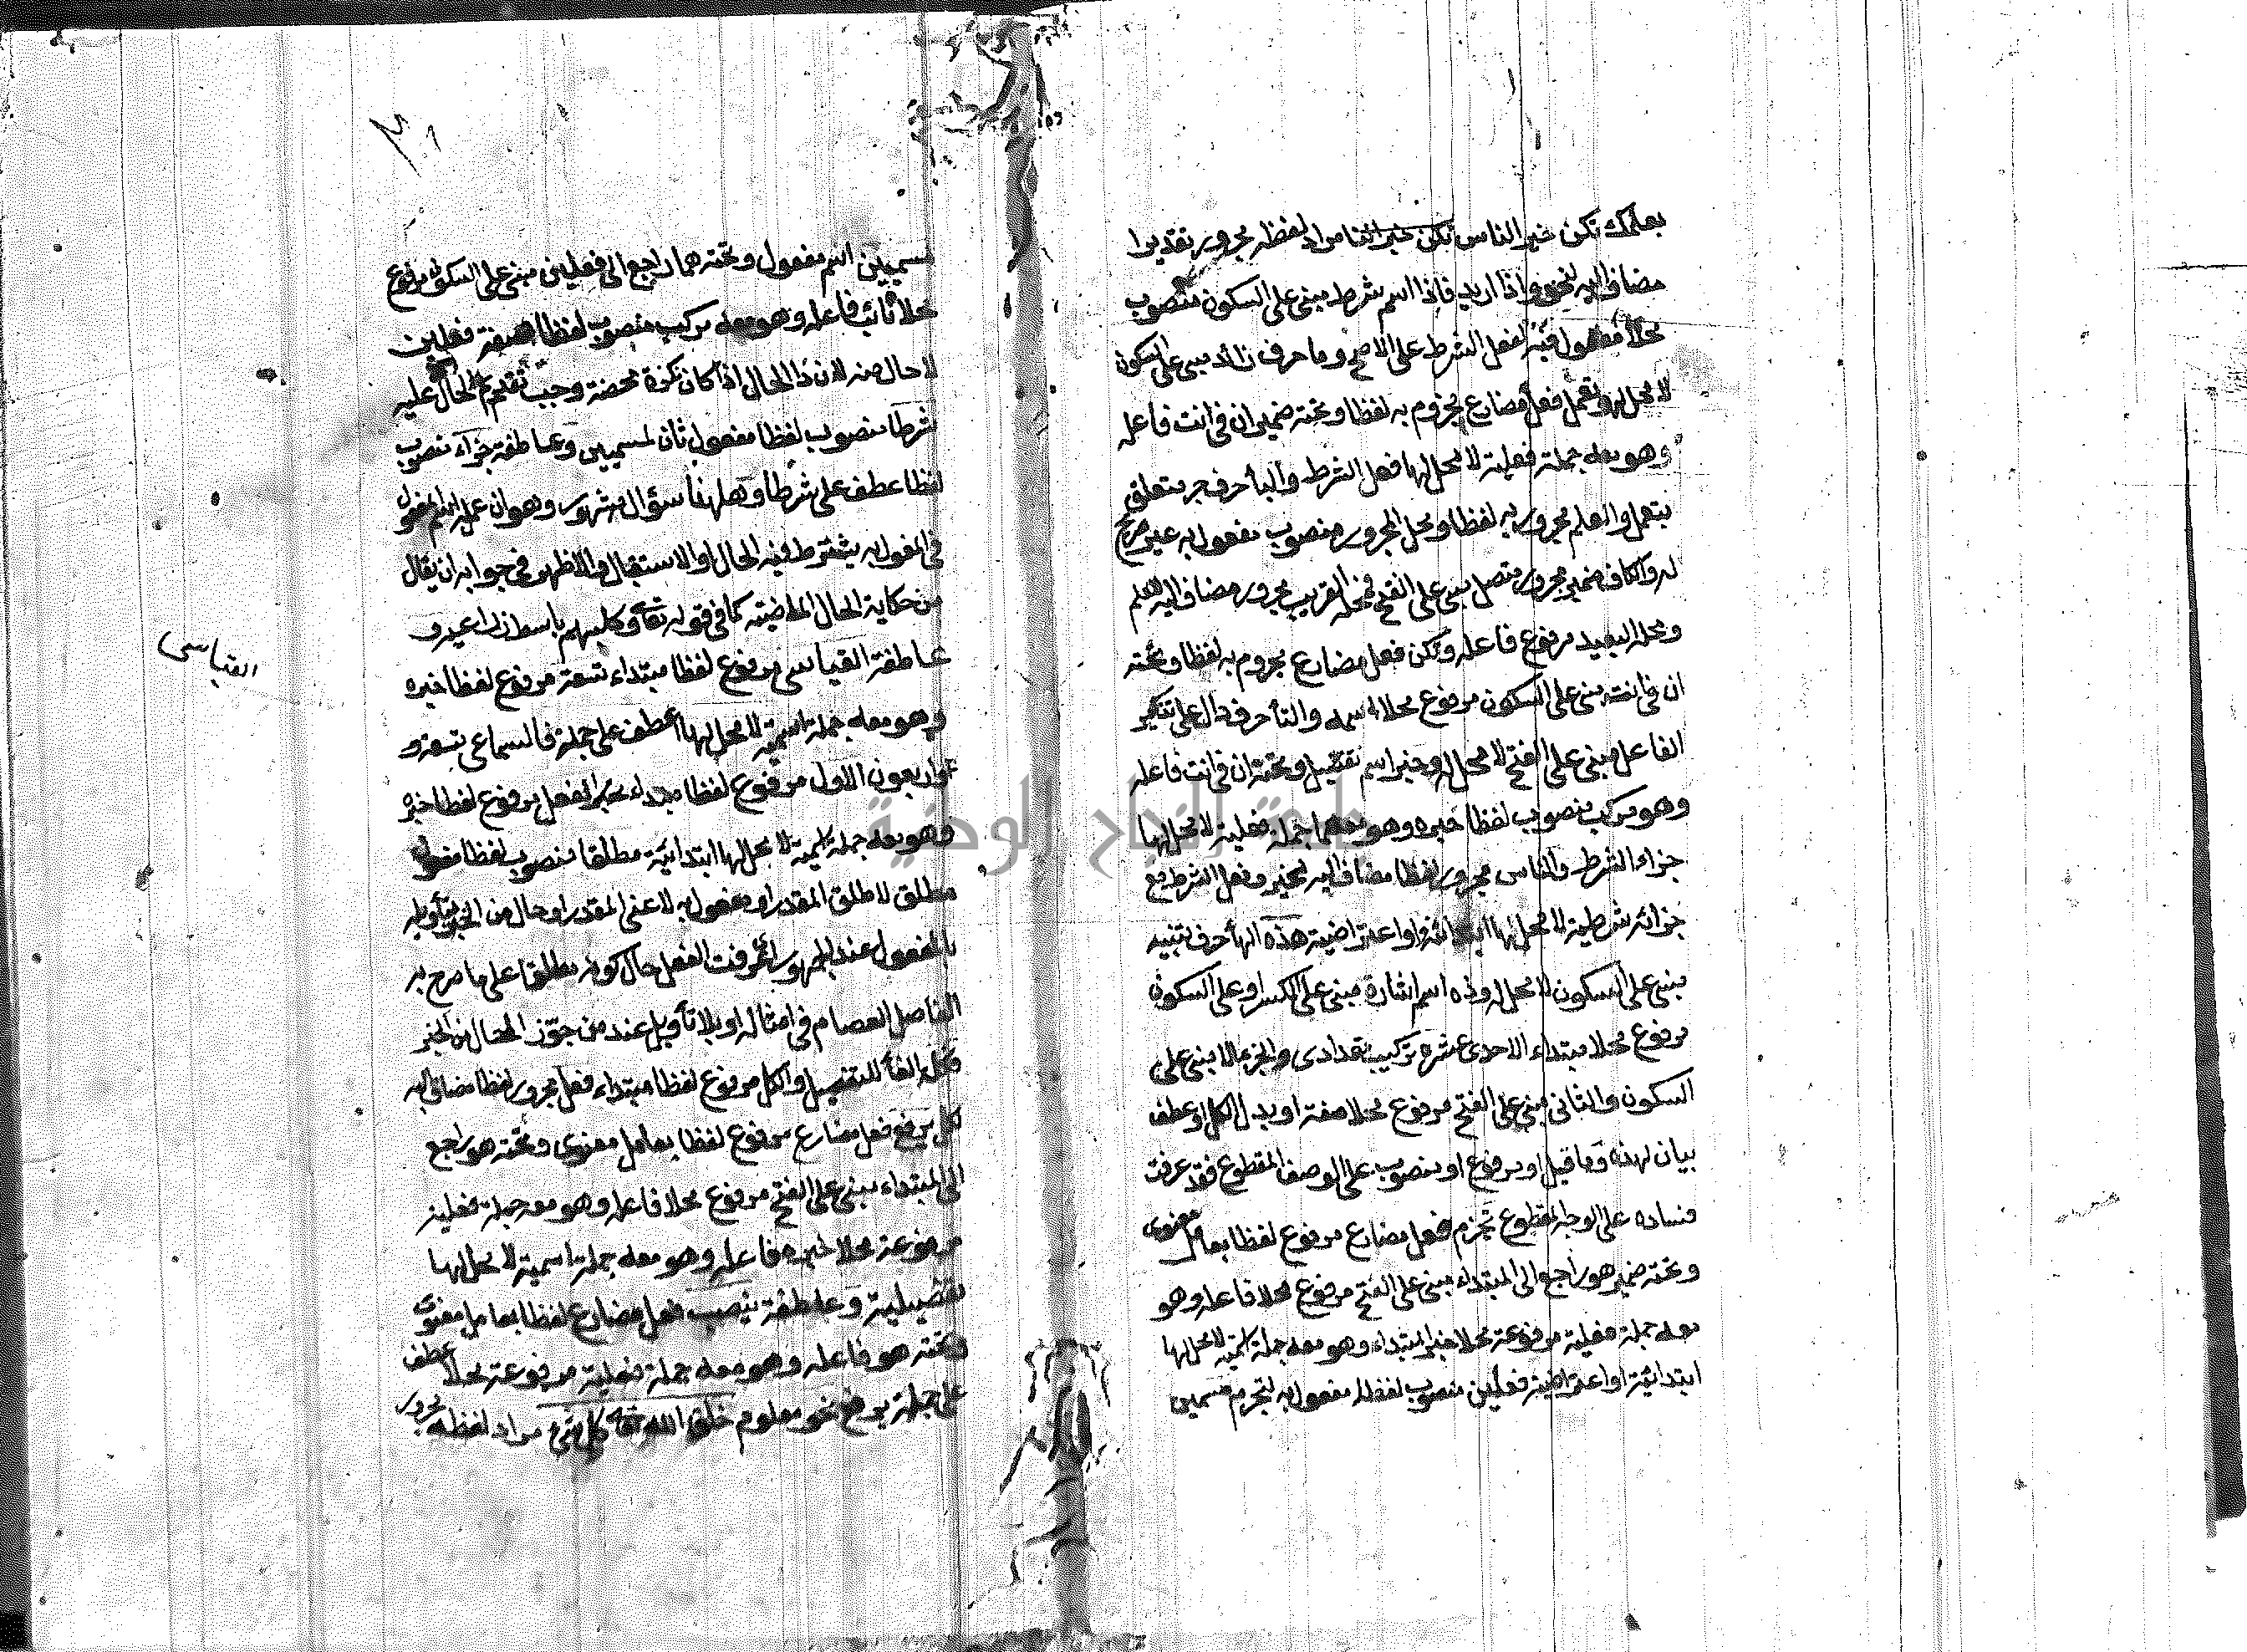 بعلمك تكن خير الناس تكن خير الناس مراد لفظه مجرور تقديرا
مضاف اليه لنحو واذا اريد فاذا اسم شرط مبنى على السكون منصوب
محلا مفعول فيه لفعل الشرط على الاصح وما حرف زائد مبنى على السكون
لا محل له وتعمل فعل مضارع مجزوم به لفظا وتحته ضمير ان فى انت فاعله
وهو معه جملة فعلية لا محل لها فعل الشرط والبأ حرف جر متعلق
بتعمل والعلم مجرور به لفظا ومحل المجرور منصوب مفعول به غير صريح
له والكاف ضمير مجرور متصل مبنى على الفتح فمحله القريب مجرور مضاف اليه لعلم
ومحله البعيد مرفوع فاعله وتكن فعل مضارع مجزوم به لفظا وتحته
ان فى انت مبنى على السكون مرفوع محلا اسمه والتأ حرف دال على تذكير
الفاعل مبنى على الفتح لا محل له وخير اسم تفضيل وتحته ان فى انت فاعله
وهو مركب منصوب لفظا خبره وهو معهما جملة فعلية لا محل لها
جزاء الشرط والناس مجرور لفظا مضاف اليه لخير وفعل الشرط مع
جزائه شرطية لا محل لها ابتدائية او اعتراضية هذه الهأ حرف تنبيه
مبنى على السكون لا محل له وذه اسم اشارة مبنى على الكسر او على السكون
مرفوع محلا مبتداء الاحدى عشره تركيب تعدادى والجزء الا مبنى على
السكون والثانى مبنى على الفتح مرفوع محلا صفة او بدل الكل او عطف
بيان لهذه وما قيل او مرفوع او منصوب على الوصف المقطوع فقد عرفت
فساده على الوجه المقطوع تجزم فعل مضارع مرفوع لفظا بعامل معنوى
وتحته ضمير هو راجع الى المبتداء مبنى على الفتح مرفوع محلا فاعله وهو
معه جملة فعلية مرفوعة محلا خبر المبتداء وهو معه جملة اسمية لا محل لها
ابتدائية او اعتراضية فعلين منصوب لفظا مفعول به لتجزم مسميين
مسميين اسم مفعول وتحته هما راجع الى فعلين مبنى على السكون مرفوع
محلا نائب فاعله وهو معه مركب منصوب لفظا صفة فعلين
لا حال منه لان ذا الحال اذا كان نكرة محضة وجب تقديم الحال عليه
شرطا منصوب لفظا مفعول ثان لمسميين وعاطفة جزاء منصوب
لفظا عطف على شرطا وههنا سؤال مشهور وهو ان عمل اسم المفعول
فى المفعول به يشترط فيه الحال او الاستقبال والاظهر فى جوابه ان يقال
من حكاية الحال الماضية كما فى قوله تعا وكلبهم باسط ذراعيه و
عاطفة القياسى مرفوع لفظا مبتداء تسعة مرفوع لفظا خبره
وهو معه جملة اسمية لا محل لها عطف على جملة فالسماعى تسعة و
اربعون الاول مرفوع لفظا مبتداء الفعل مرفوع لفظا خبره
وهو معه جملة اسمية لا محل لها ابتدائية مطلقا منصوب لفظا مفعول
مطلق لاطلق المقدر او مفعول به لاعنى المقدر او حال من الخبر بتأويله
بالمفعول عند الجمهور اى عرفت الفعل حال كونه مطلقا على ما صرح به
الفاضل العصام فى امثاله او بلا تأويل عند من جوز الحال من الخبر
فكل الفأ للتفصيل والكل مرفوع لفظا مبتداء فعل مجرور لفظا مضاف اليه
لكل يرفع فعل مضارع مرفوع لفظا بعامل معنوى وتحته هو راجع
الى المبتداء مبنى على الفتح مرفوع محلا فاعله وهو معه جملة فعلية
مرفوعة محلا خبره فاعله وهو معه جملة اسمية لا محل لها
تفصيلية وعاطفة ينصب فعل مضارع لفظا بعامل معنوى
وتحته هو فاعله وهو معه جملة فعلية مرفوعة محلا عطف
على جملة يرفع نحو معلوم خلق الله تعا كل شئ مراد لفظه مجرور
القياسى
جامعة النجاح الوطنية